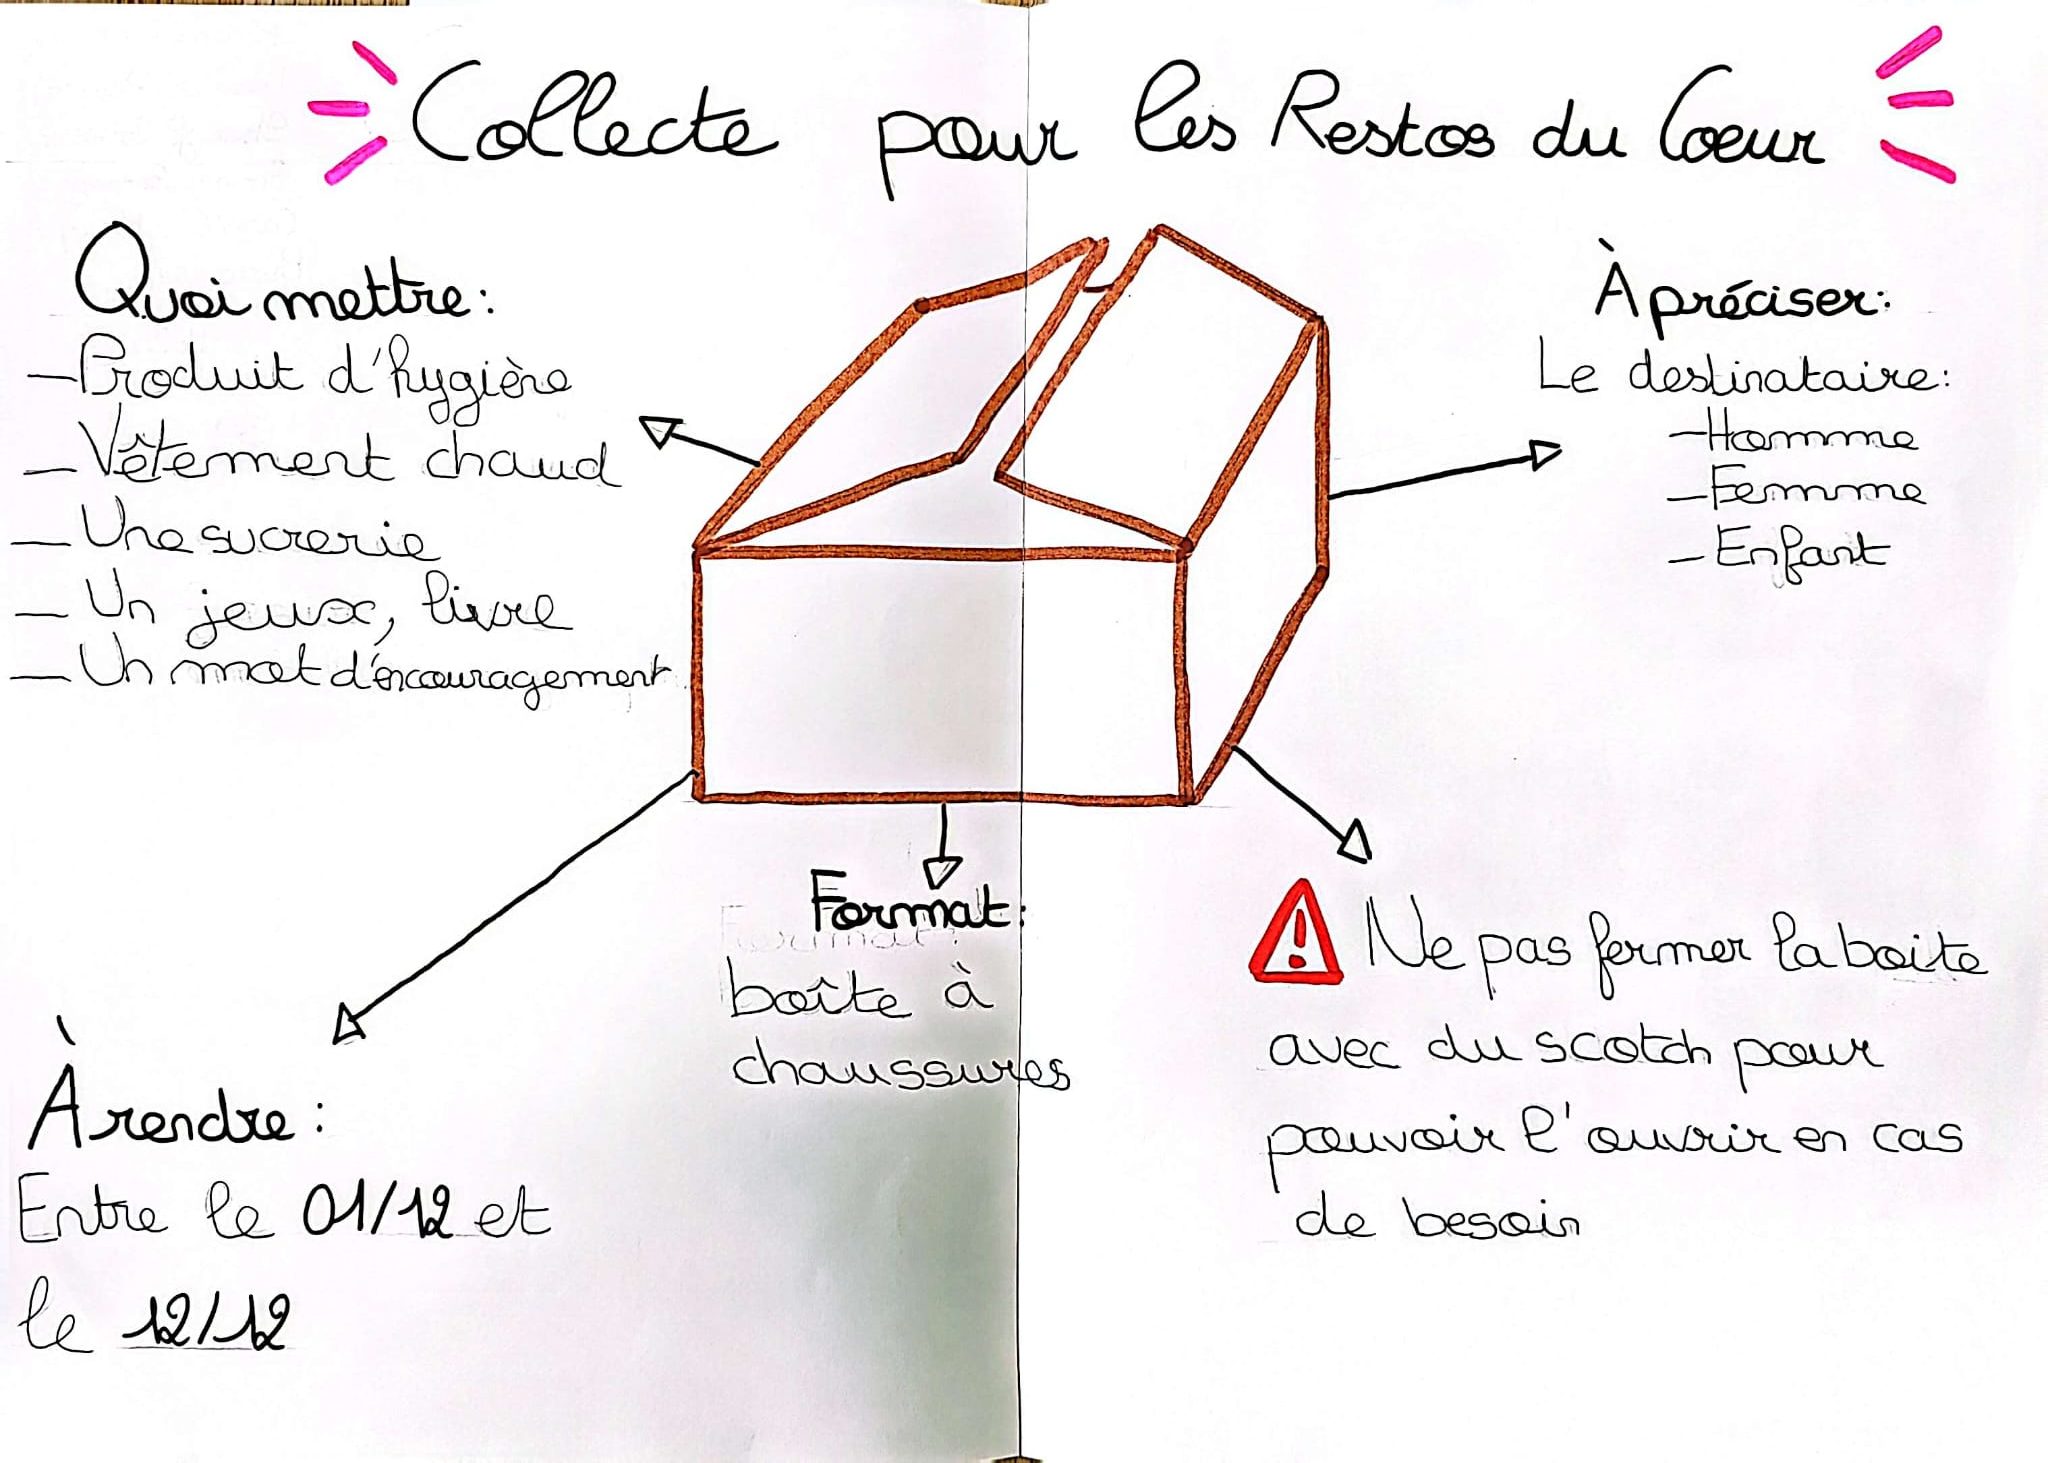 Collecte pour les Restos du Coeur
Quoi mettre:
- Produit d'hygiène
- Vêtement chaud
- Une sucrerie
- Un jeux, livre
- Un mot d'encouragement
À préciser:
Le destinataire:
- Homme
- Femme
- Enfant
Format:
boîte à
chaussures
Ne pas fermer la boite
avec du scotch pour
pouvoir l'ouvrir en cas
de besoin
À rendre:
Entre le 01/12 et
le 12/12